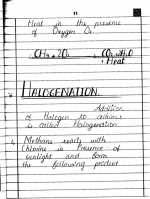 11
Heat in the presence
of Oxygen O₂
CH₄ + 2O₂ → CO₂ + H₂O
+ Heat
HALOGENATION.
Addition
of Halogen to alkans
is called Halogenation
Methane reacts with
Chlorine in Presence of
sunlight and form
the following product